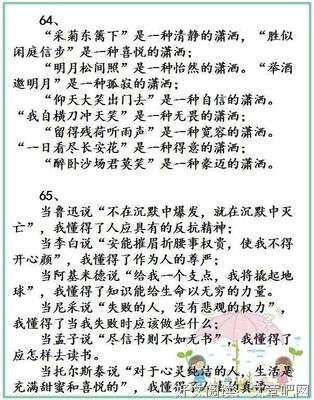 64、
“采菊东篱下”是一种清静的潇洒，“胜似
闲庭信步”是一种喜悦的潇洒；
“明月松间照”是一种怡然的潇洒。“举酒
邀明月”是一种孤寂的潇洒；
“仰天大笑出门去”是一种自信的潇洒。
“我自横刀冲天笑”是一种无畏的潇洒；
“留得残荷听雨声”是一种宽容的潇洒。
“一日看尽长安花”是一种得意的潇洒；
“醉卧沙场君莫笑”是一种豪迈的潇洒。
65、
当鲁迅说“不在沉默中爆发，就在沉默中灭
亡”，我懂得了人应具有的反抗精神；
当李白说“安能摧眉折腰事权贵，使我不得
开心颜”，我懂得了作为人的尊严；
当阿基米德说“给我一个支点，我将撬起地
球”，我懂得了知识能给生命以无穷的力量。
当尼采说“失败的人，没有悲观的权力”，
我懂得了当我失败时应该做些什么；
当孟子说“尽信书则不如无书”，我懂得了
应怎样去读书。
当托尔斯泰说“对于心灵纯洁的人，生活是
充满甜蜜和喜悦的”，我懂得了